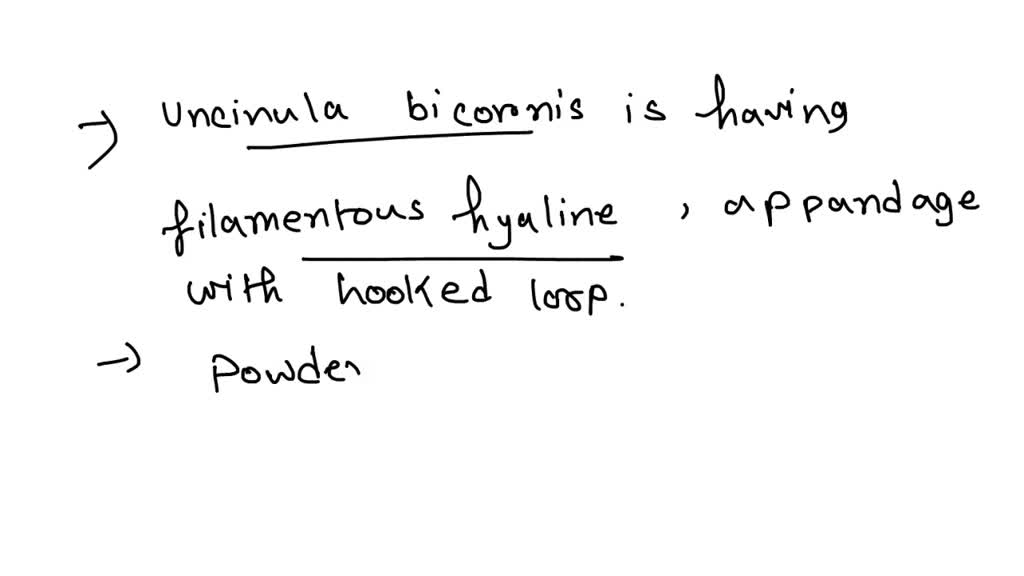 → Uncinula bicornis is having
filamentous hyaline , appandage
with hooked loop.
→ Powder